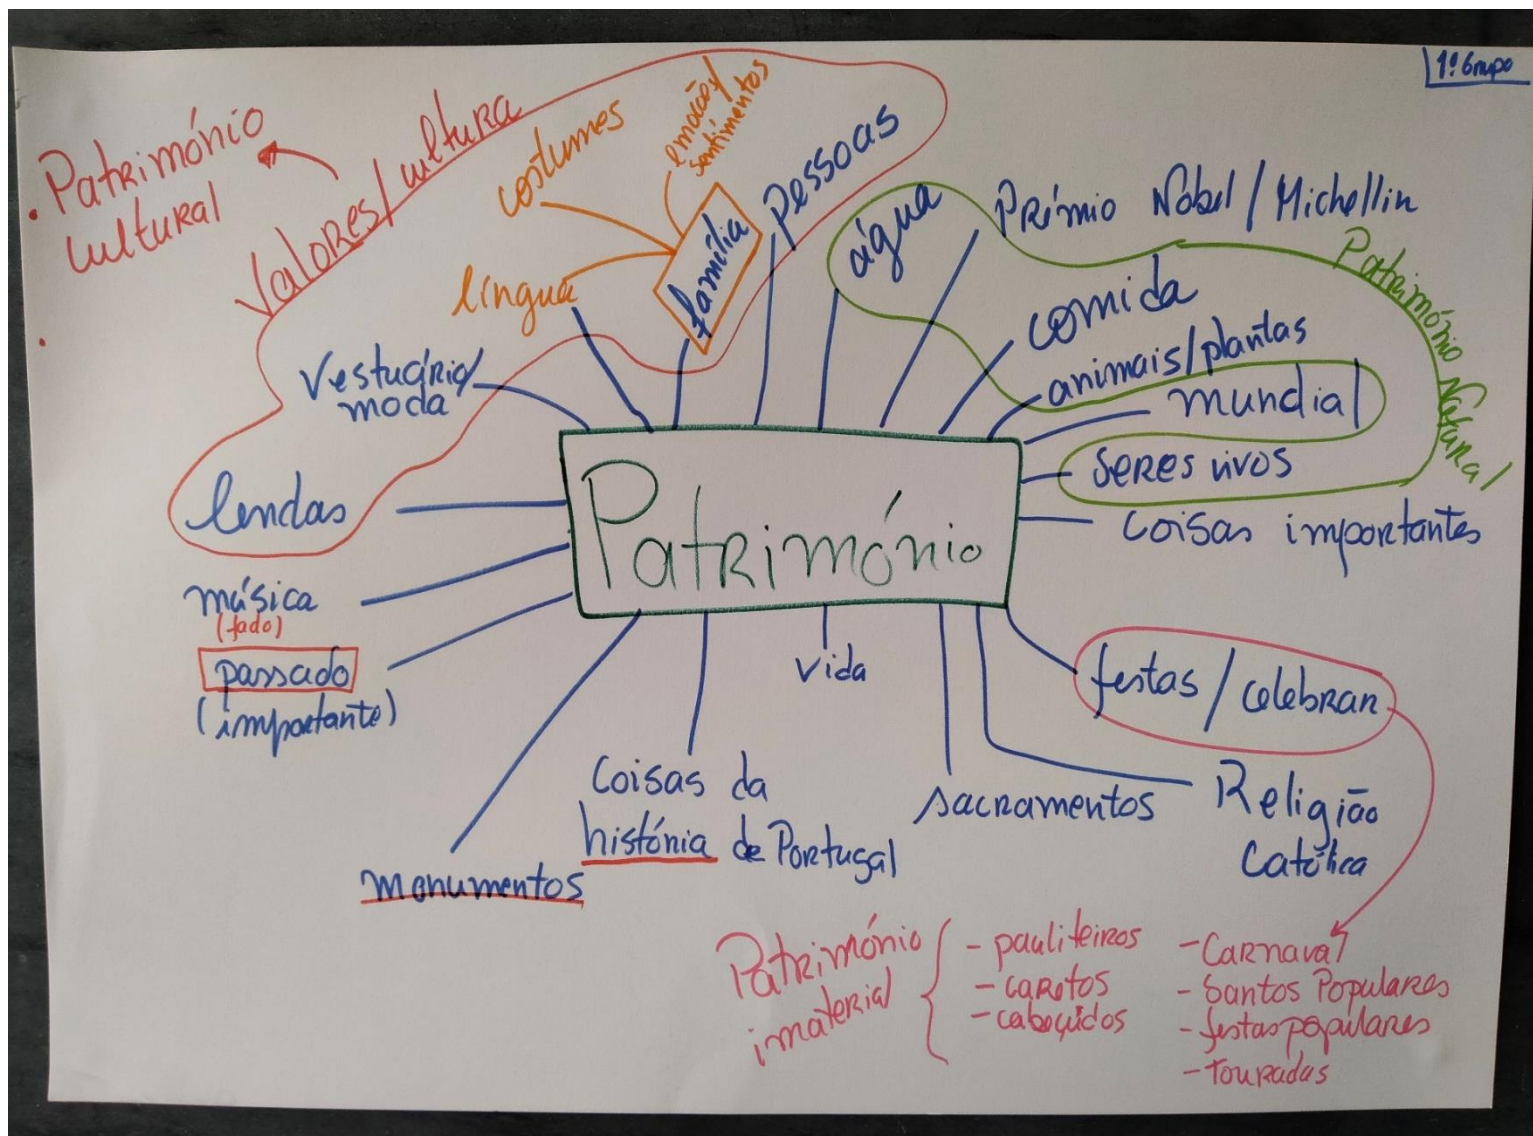 1º Grupo
. Património
cultural
.
Valores/cultura
costumes
emoção/
sentimentos
pessoas
língua
família
água
Prémio Nobel/Michellin
Património Natural
comida
animais/plantas
mundial
seres vivos
coisas importantes
vestuário/
moda
lendas
Património
música
(fado)
passado
(importante)
vida
festas/celebrar
monumentos
coisas da
história de Portugal
sacramentos
Religião
Católica
Património
imaterial
- pauliteiros
- caretos
- cabeçudos
- Carnaval
- Santos Populares
- festas populares
- touradas